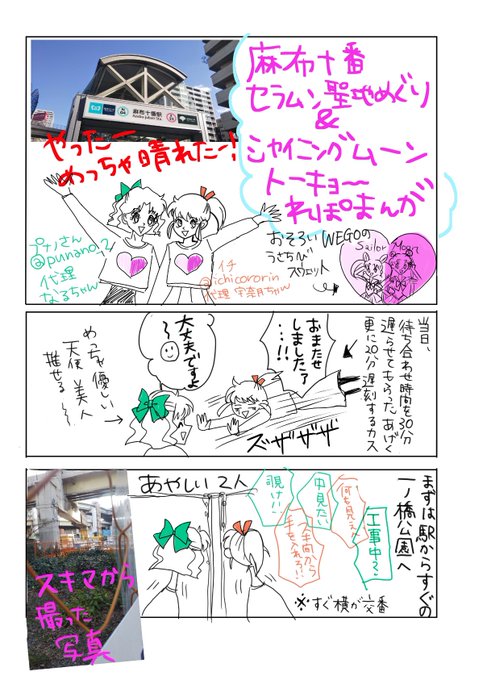 麻布十番
セラムン聖地めぐり
&
シャイニングムーン
トーキョー
れぽまんが
麻布十番駅
やったー
めっちゃ晴れたー!
プナノさん
@punano_2
代理
なるちゃん
イチ
@ichicororin
代理 宇奈月ちゃん
おそろいWEGOの
うさちび
スウェット
Sailor Moon
当日、
待ち合わせ時間を30分
遅らせてもらったあげく
更に20分遅刻するカス
おまたせ
しました？
…!!
ズザザザ
大丈夫ですよ
〜
めっちゃ優しい
天使 美人
推せる〜
まずは駅からすぐの
一ノ橋公園へ
工事中？
何も見え
中見たい
覗け!!
手を入れろ!!
あやしい2人
※すぐ横が交番
スキマから
撮った
写真